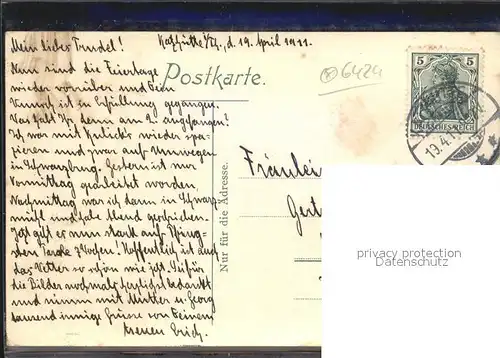 Mein lieber Trudel!
Katzhütte i/Th., d. 19. April 1911.
Nun sind die Feiertage
wieder vorrüber und Dein
Wunsch ist in Erfüllung gegangen.
ich dann am 2. angfangen!
Ich war mit wieder spa-
zieren und zwar auf Umwegen
in Schwarzburg. Gestern ist nur
Vormittag gearbeitet worden,
Nachmittag war ich dann in Schwarz
und habe Abend geschrieben.
Jetzt gilt es nun stark auf Pfing-
sten 7 Wochen! Hoffentlich ist auch
das Wetter so schön wie jetzt. Sei für
die Bilder nochmals herzlichst bedankt
und nimm mit Mutter u. Georg
tausend innige Grüsse von Deinem
treuen Erich.
Postkarte.
6429
5 5
DEUTSCHES REICH
19.4.
Nur für die Adresse.
Fräulein
Gert
privacy protection
Datenschutz